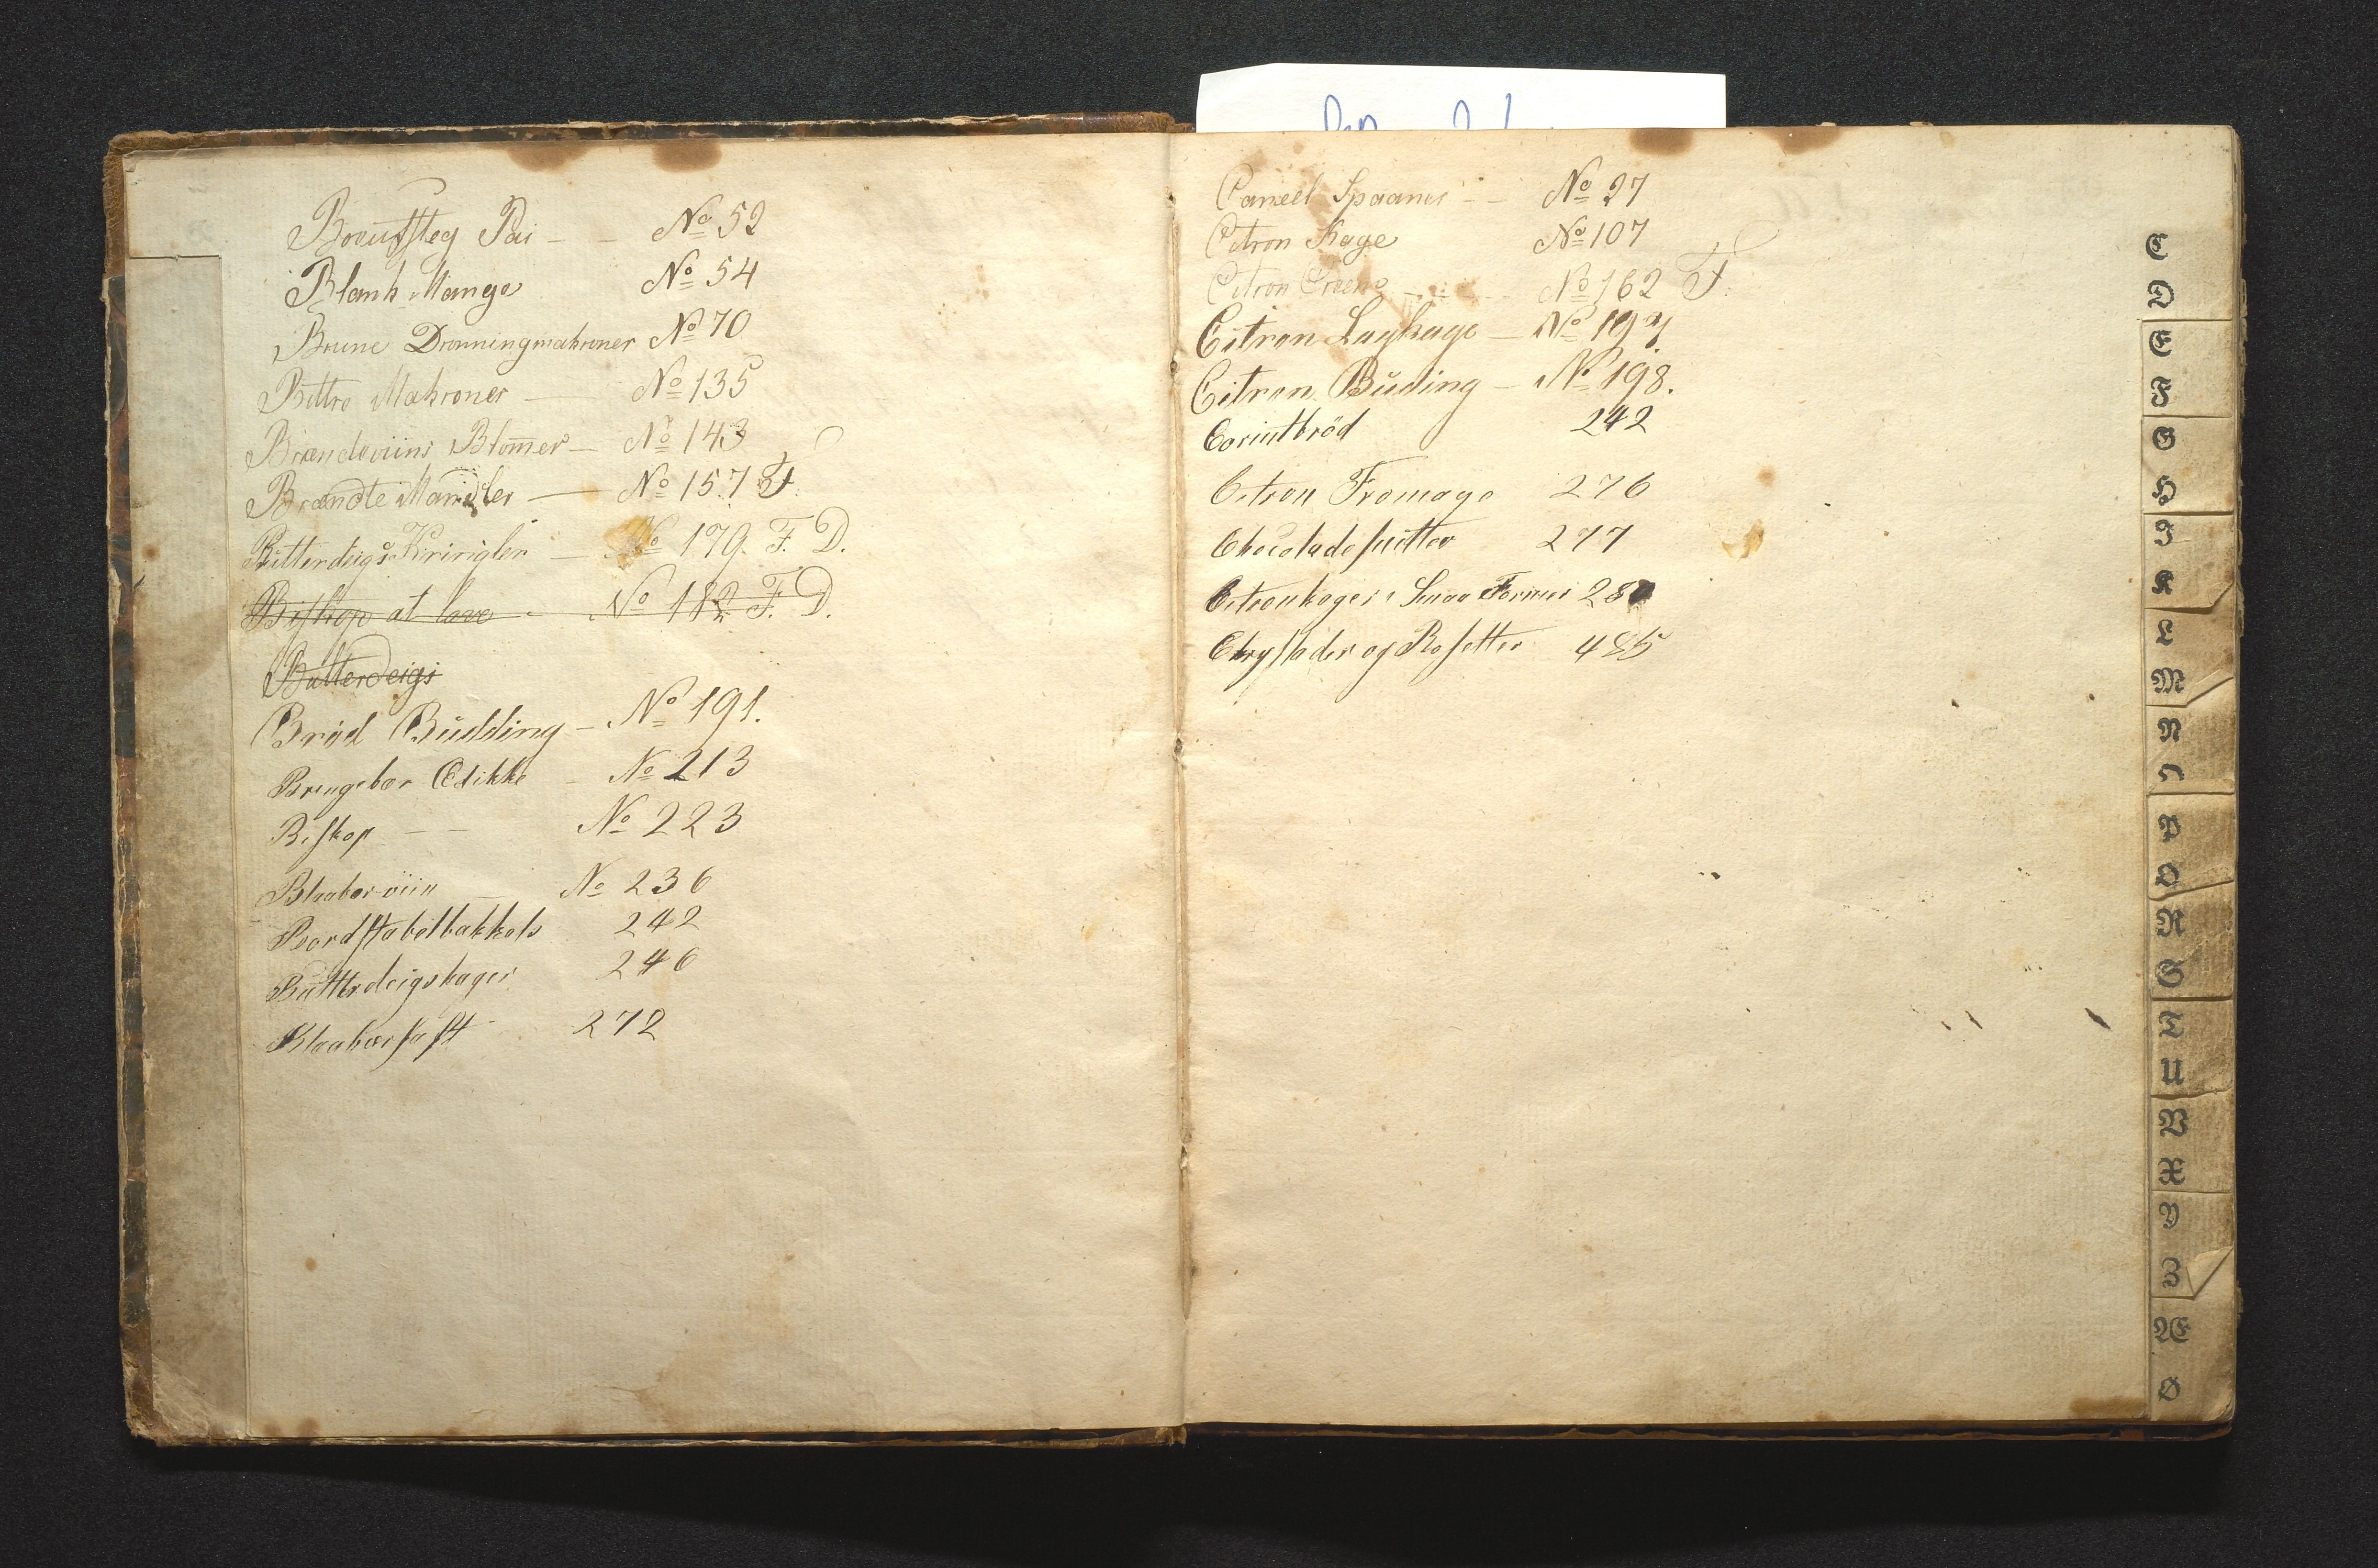 Boeufsteg Pai - - No 52
Blank Mange No 54
Brune Dronningmakroner No 70
Bittre Makroner - No 135
Brændeviins Blom̅er - No 143
Brændte Mandler - No 157 F
Butterdeigs Kringler - No 179. F. D.
Biskop at lave - No 182 F. D.
Butterdeigs
Bröd Budding - No 191.
Bringebær Edikke - No 213
Biskop - - No 223
Blaabærviin - No 236
Bordstabelbakkels 242
Butterdeigskager 246
Blaabærsaft - 272
Caneel Spaaner - - No 27
Citron Kage No 107
Citron Creme - - No 162 F.
Citron Lagkage - No 197.
Citron Büding - No 198.
Corintbröd 242
Citron Fromage 276
Chocolade 277
Citronkager i Smaa Former 28
Chrystader og Rosetter 485
C
D
E
F
G
H
I
K
L
M
N
O
P
Q
R
S
T
U
V
X
Y
Z
Æ
Ø